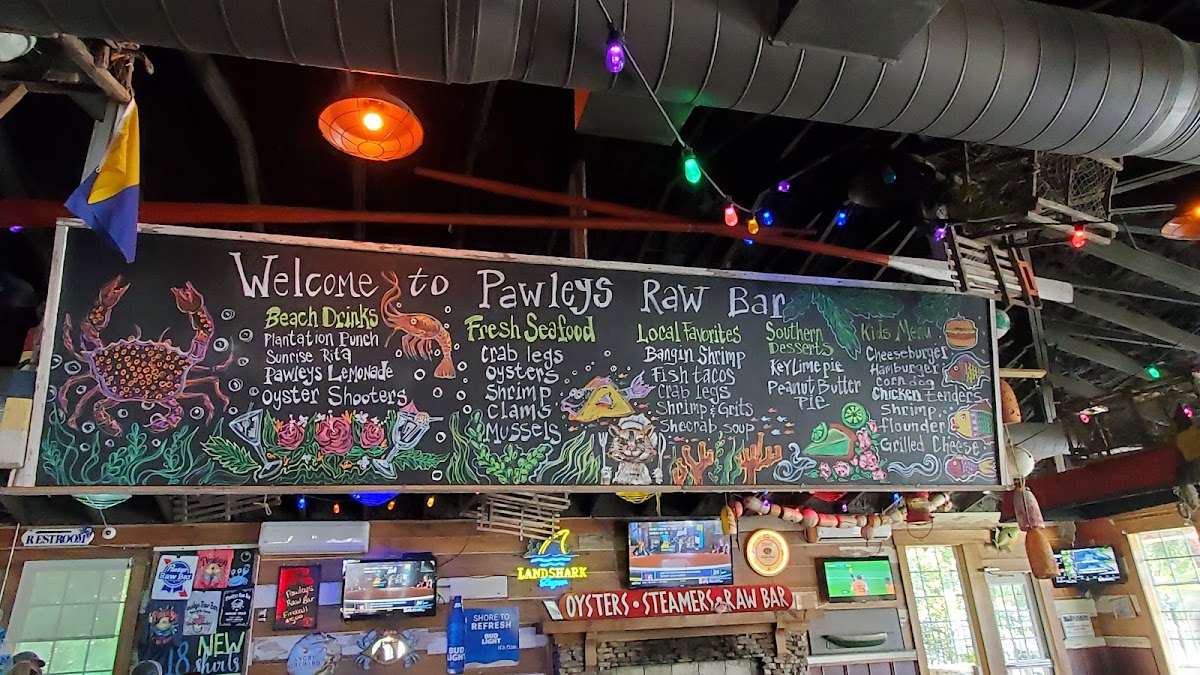 Welcome to Pawleys Raw Bar
Beach Drinks
Plantation Punch
Sunrise Rita
Pawleys Lemonade
Oyster Shooters
Fresh Seafood
Crab legs
oysters
Shrimp
Clams
Mussels
Local Favorites
Bangin Shrimp
Fish tacos
Crab legs
Shrimp & Grits
Shecrab soup
Southern
Desserts
Key Lime pie
Peanut Butter
Pie
Kids Menu
Cheeseburger
Hamburger
corn dog
chicken tenders
Shrimp
Flounder
Grilled Cheese
RESTROOM
Raw Bar
NEW
shirts
18
Pawleys
Raw Bar
Fireball
LANDSHARK
SHORE TO
REFRESH
BUD
LIGHT
BUD
LIGHT
OYSTERS • STEAMERS • RAW BAR